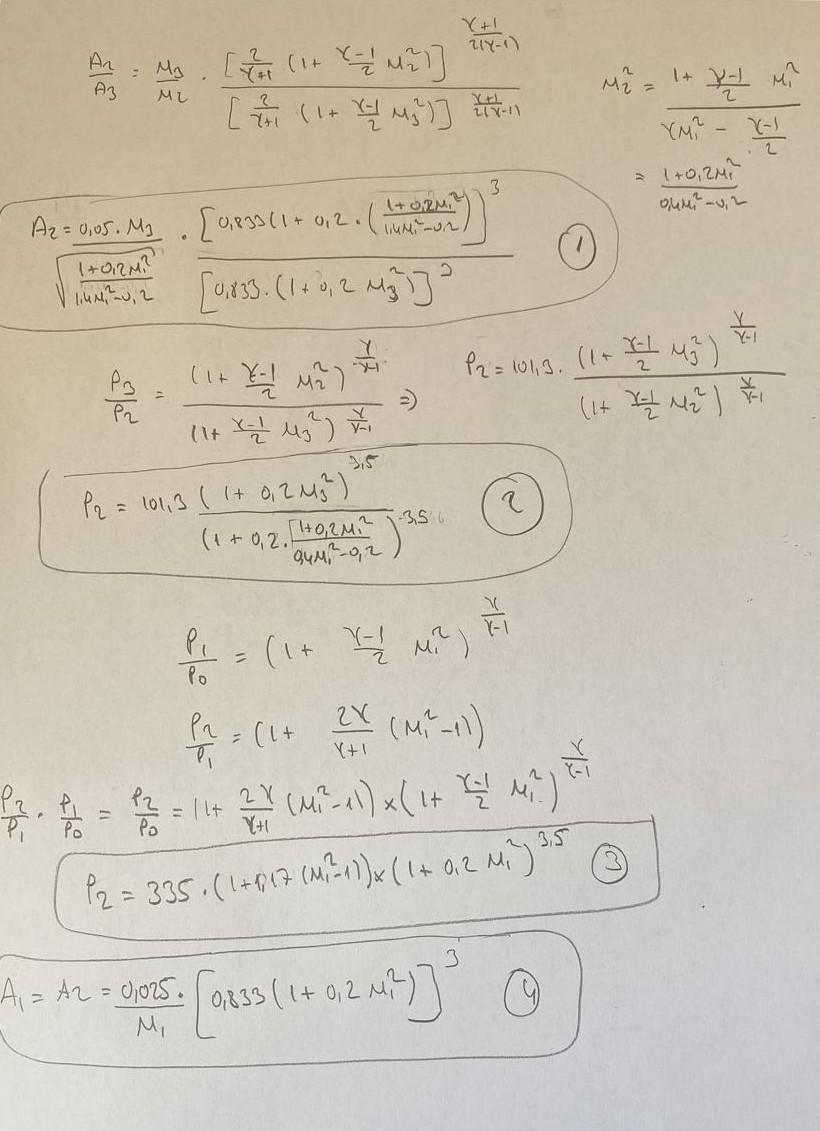 A2/A3 = M3/M2 · [2/(γ+1) (1+ (γ-1)/2 M2²)]^((γ+1)/(2(γ-1))) / [2/(γ+1) · (1+ (γ-1)/2 M3²)]^((γ+1)/(2(γ-1)))
M2² = (1 + (γ-1)/2 M1²) / (γM1² - (γ-1)/2)
= (1+0,2M1²) / (0,4M1²-0,2)
A2 = 0,05 · M3 / √((1+0,2M1²)/(1,4M1²-0,2)) · [0,833(1+0,2 · ((1+0,2M1²)/(1,4M1²-0,2))]³ / [0,833·(1+0,2 M3²)]³ ①
P3/P2 = (1+ (γ-1)/2 M2²)^(γ/(γ-1)) / (1+ (γ-1)/2 M3²)^(γ/(γ-1)) =>
P2 = 101,3 · (1+ (γ-1)/2 M3²)^(γ/(γ-1)) / (1+ (γ-1)/2 M2²)^(γ/(γ-1))
P2 = 101,3 (1+ 0,2M3²)^3,5 / (1+0,2·[(1+0,2M1²)/(0,4M1²-0,2)])^3,5 ②
P1/P0 = (1+ (γ-1)/2 M1²)^(γ/(γ-1))
P2/P1 = (1+ 2γ/(γ+1) (M1²-1))
P2/P1 · P1/P0 = P2/P0 = (1+ 2γ/(γ+1) (M1²-1)) × (1+ (γ-1)/2 M1²)^(γ/(γ-1))
P2 = 335·(1+1,17(M1²-1))×(1+0,2 M1²)^3,5 ③
A1 = A2 = 0,025·/M1 [0,833(1+0,2 M1²)]³ ④